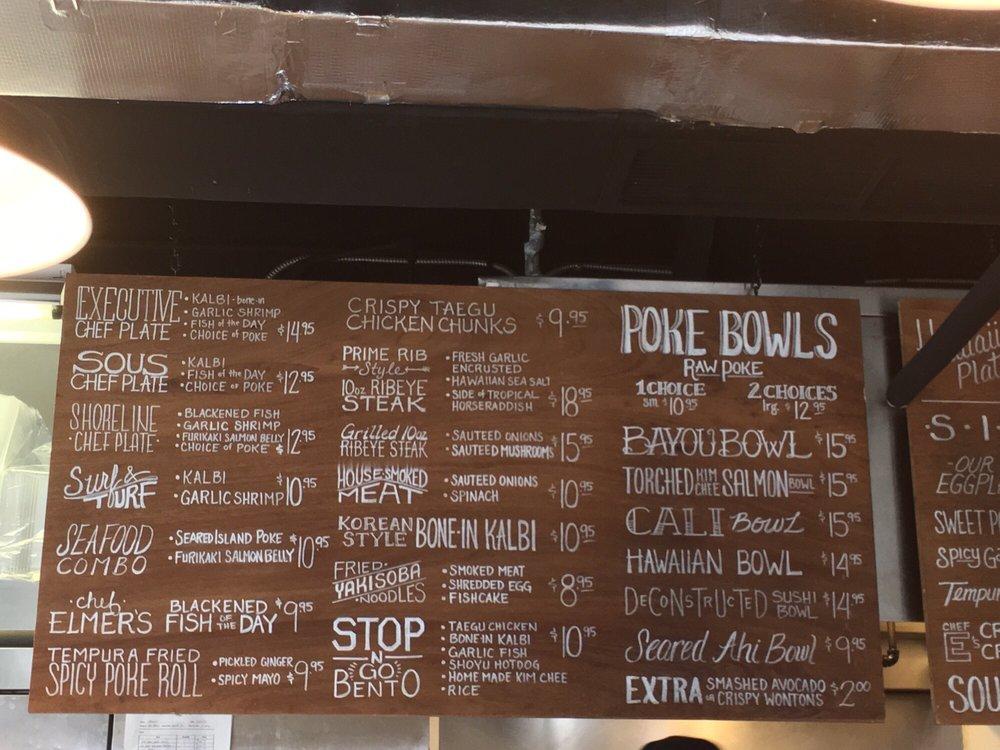 EXECUTIVE
CHEF PLATE
• KALBI - bone-in
• GARLIC SHRIMP
• FISH of the DAY
• CHOICE of POKE
$14.95
SOUS
CHEF PLATE
• KALBI
• FISH of the DAY
• CHOICE of POKE
$12.95
SHORELINE
• CHEF PLATE •
• BLACKENED FISH
• GARLIC SHRIMP
• FURIKAKI SALMON BELLY
• CHOICE of POKE
$12.95
Surf &
TURF
• KALBI
• GARLIC SHRIMP
$10.95
SEAFOOD
COMBO
• SEARED ISLAND POKE
• FURIKAKI SALMON BELLY
$10.95
chef
ELMER'S
BLACKENED
FISH OF THE DAY
$9.95
TEMPURA FRIED
SPICY POKE ROLL
• PICKLED GINGER
• SPICY MAYO
$9.95
CRISPY TAEGU
CHICKEN CHUNKS
$9.95
PRIME RIB
Style
10oz. RIBEYE
STEAK
• FRESH GARLIC
ENCRUSTED
• HAWAIIAN SEA SALT
• SIDE of TROPICAL
HORSERADDISH
$18.95
Grilled 10oz
RIBEYE STEAK
• SAUTEED ONIONS
• SAUTEED MUSHROOMS
$15.95
HOUSE-SMOKED
MEAT
• SAUTEED ONIONS
• SPINACH
$10.95
KOREAN
STYLE
BONE-IN KALBI
$10.95
FRIED
YAKISOBA
• NOODLES
• SMOKED MEAT
• SHREDDED EGG
• FISHCAKE
$8.95
STOP
N
GO
BENTO
• TAEGU CHICKEN
• BONE-IN KALBI
• GARLIC FISH
• SHOYU HOTDOG
• HOME MADE KIM CHEE
• RICE
$10.95
POKE BOWLS
RAW POKE
1 CHOICE
sm $10.95
2 CHOICES
lrg. $12.95
BAYOU BOWL $15.95
TORCHED KIM CHEE SALMON BOWL $15.95
CALI BOWL $15.95
HAWAIIAN BOWL $14.95
DECONSTRUCTED SUSHI BOWL $14.95
Seared Ahi Bowl $9.95
EXTRA SMASHED AVOCADO
or CRISPY WONTONS
$2.00
Plat
• S • I
-OUR
EGGPL
SWEET P
Spicy G
Tempur
CHEF
E'S
CR
CR
SOU